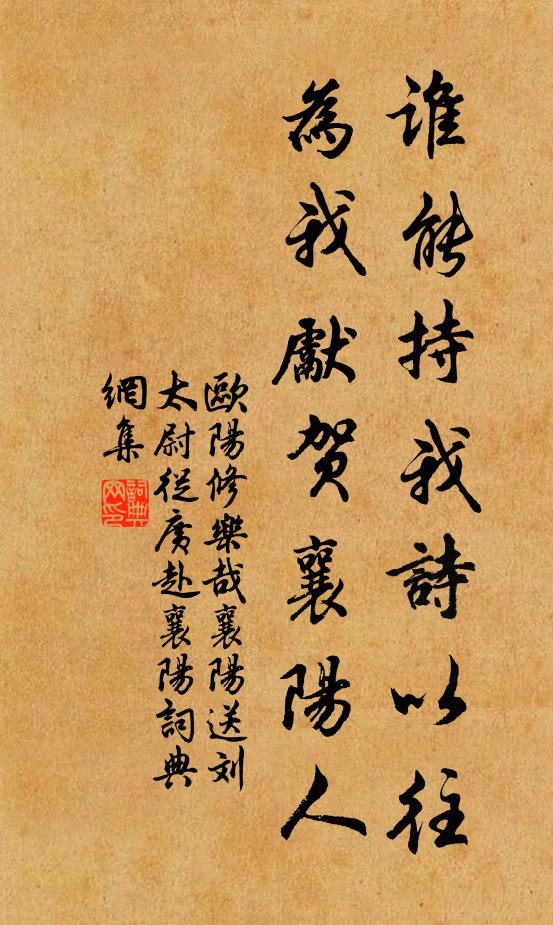 誰能持我詩以往
為我獻賀襄陽人
歐陽修樂哉襄陽送刘
太尉從廣赴襄陽詞典
網集
詞典
网印